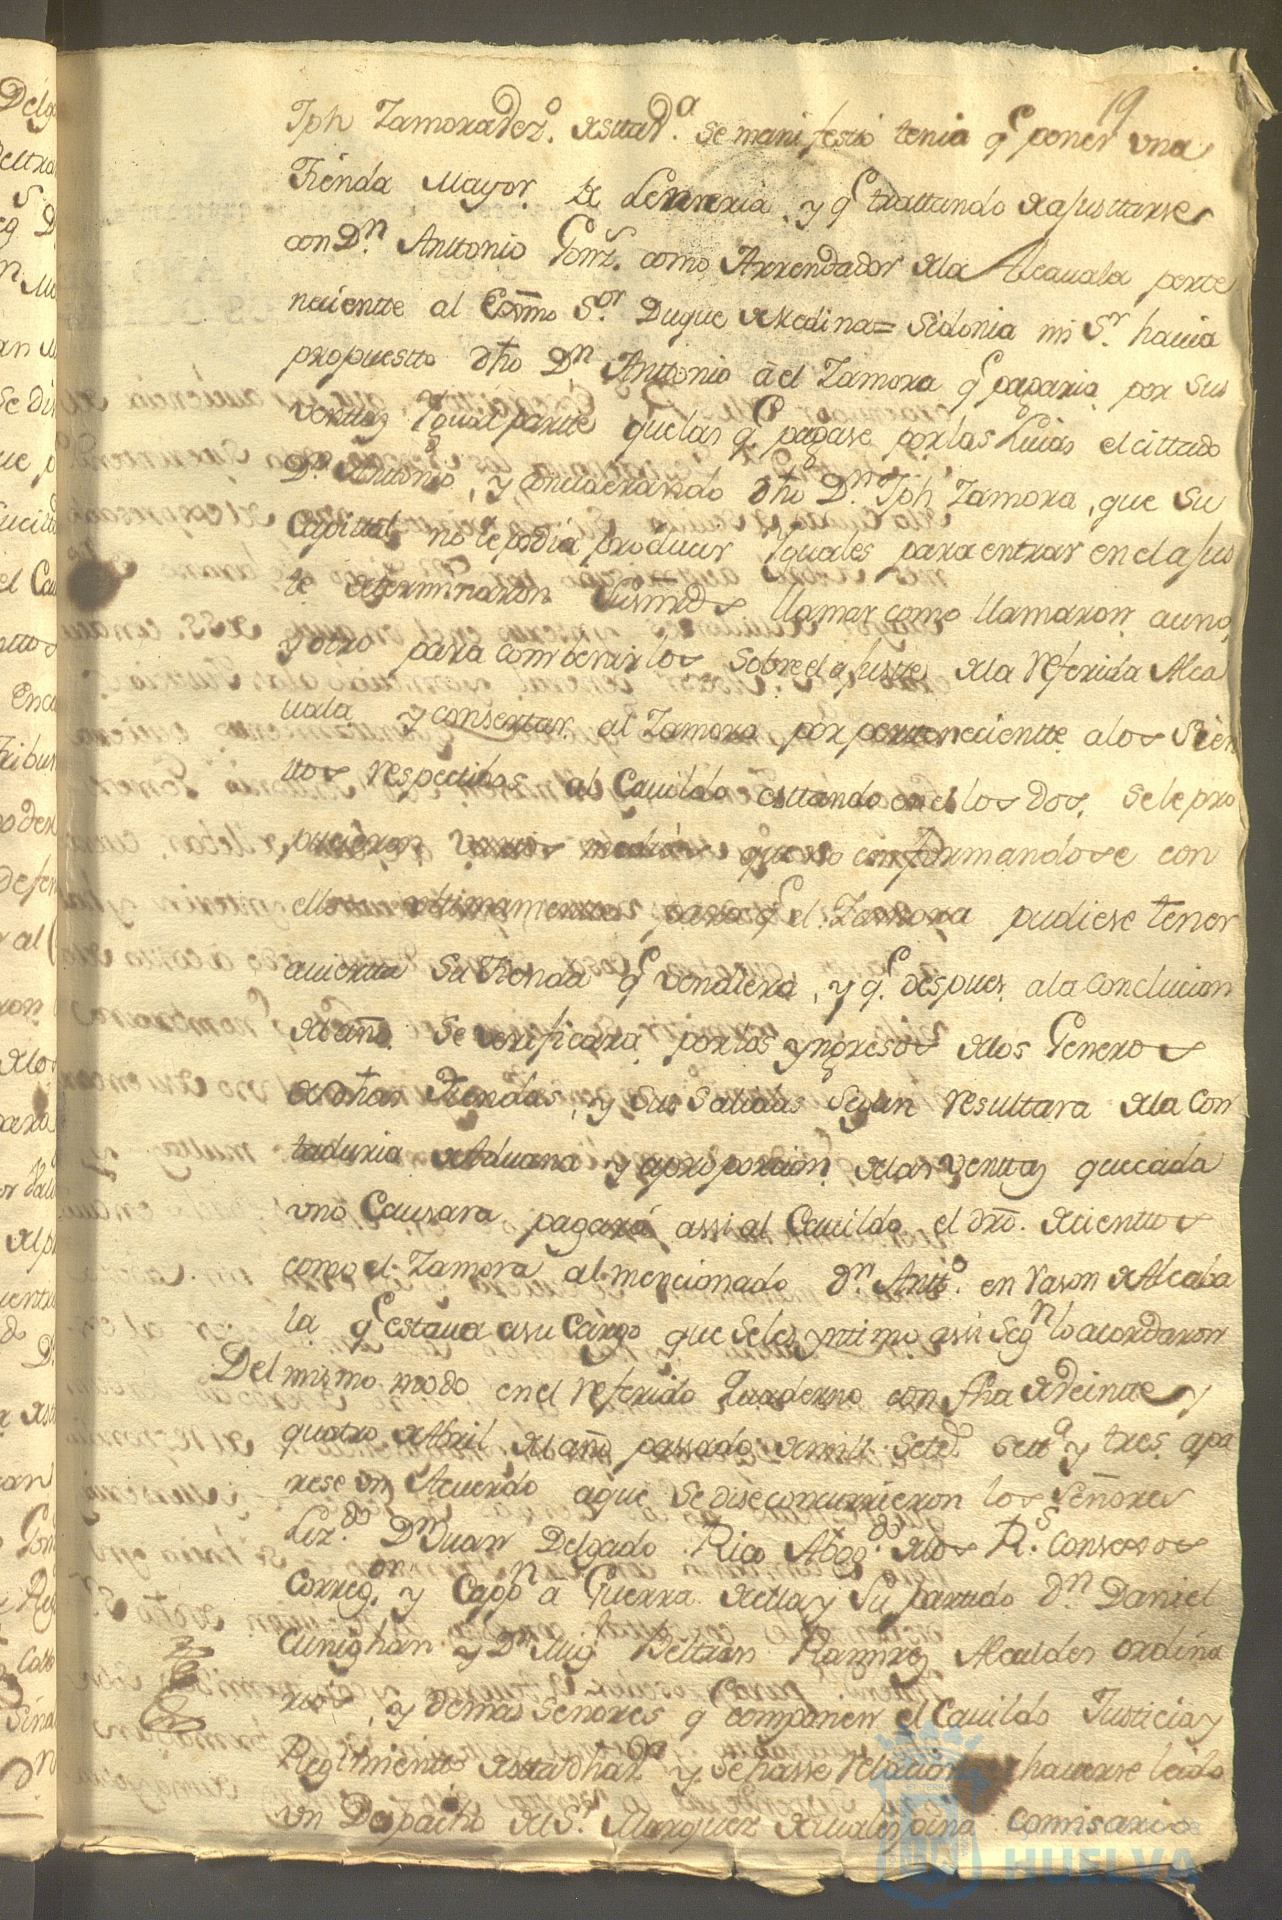 19
Jph Zamora Vez.º desttaV.ª se manifestó tenia q.e poner una
Tienda Mayor de Lenzeria, y q.e trattando de ajusttarse
con D.n Anttonio Gonz.s como Arrendador dela Alcauala perte
neciente al Exmo S.or Duque deMedina=Sidonia mi S.r hauia
propuestto dho D.n Anttonio â el Zamora q.e pagaria por sus
Venttas Ygual partte que las q.e pagase por las suias el cittado
D.n Anttonio, y conciderando dho D.n Jph Zamora, que su
Capittal no le podia producir Yguales para entrar en el ajus
te determinaron Susmrds llamar como llamaron a uno,
y otro para combenirlos sobre el ajuste dela referida Alca
uala y consertar al Zamora por perttenecientte alos Cien
ttos respectibos al Cauildo esttando en el los dos, sele pro
pucieron varios medios que no conformandose con
ellos ultimamente para q.e el Zamora pudiese tener
auiertta su Tienda q.e vendiera, y q.e despues ala Conclucion
del año se verificara por los yngresos delos Generos
de dhas Tiendas, y sus salidas segun resulttara dela Con
taduria deAduana y aproporcion delas Venttas que cada
uno Causara, pagará assi al Cauildo el dro. de cienttos
como el Zamora al mencionado D.n Antt.º en rason de Alcaba
la q.e estaua asu cargo que seles yntimo assi seg.n lo acordaron
Del mismo modo en el referido Quaderno con fha de Veintte y
quatro deAbril del año passado demill Setec.s sett.ª y tres apa
rese un Acuerdo aque se dise concurrieron los Señores
Liz.do D.n Juan Delgado Rico Abog.do delos R.s Consexos
Correg.or y Capp.n â Guerra de ella y su partido D.n Daniel
Cunighan y D.n Mig.l Beltran Ramires Alcaldes ordina
rios, y demas Señores q.e componen el Cauildo Justicia y
Regimientto desttadhaV.ª y se hasse relacion hauerse leido
un Despacho del S.r Marquez de comisario
HUELVA